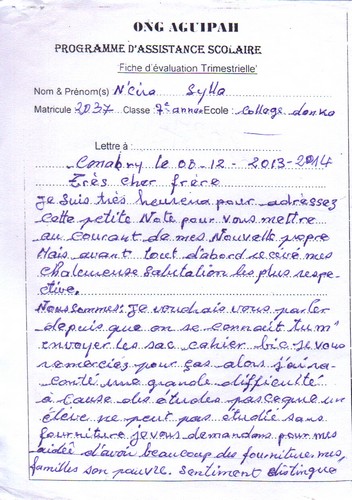 ONG AGUIPAH
PROGRAMME D'ASSISTANCE SCOLAIRE
'Fiche d'évaluation Trimestrielle'
Nom & Prénom(s) N'Cira Sylla
Matricule 2037 Classe 7e année Ecole : College donka
Lettre à :
Conakry le 08-12-2013-2014
Très cher frère
Je suis très heureux pour adressez
cette petite Note pour vous mettre
au courant de mes Nouvelle propre
Mais avant tout d'abord recevé mes
chaleureuse salutation les plus respe-
ctive.
Nous sommes: Je voudrais vous parler
depuis que on se connait tu m'
envoyer les sac cahier bic je vous
remerciez pour ças alors j'ai ra-
conté une grande difficulté
à cause des études pasceque un
élève ne peut pas étudié sans
fourniture je vous demandons pour mes
aidée d'avoir beaucoup des fourniture mes
familles son pauvre. Sentiment distingue